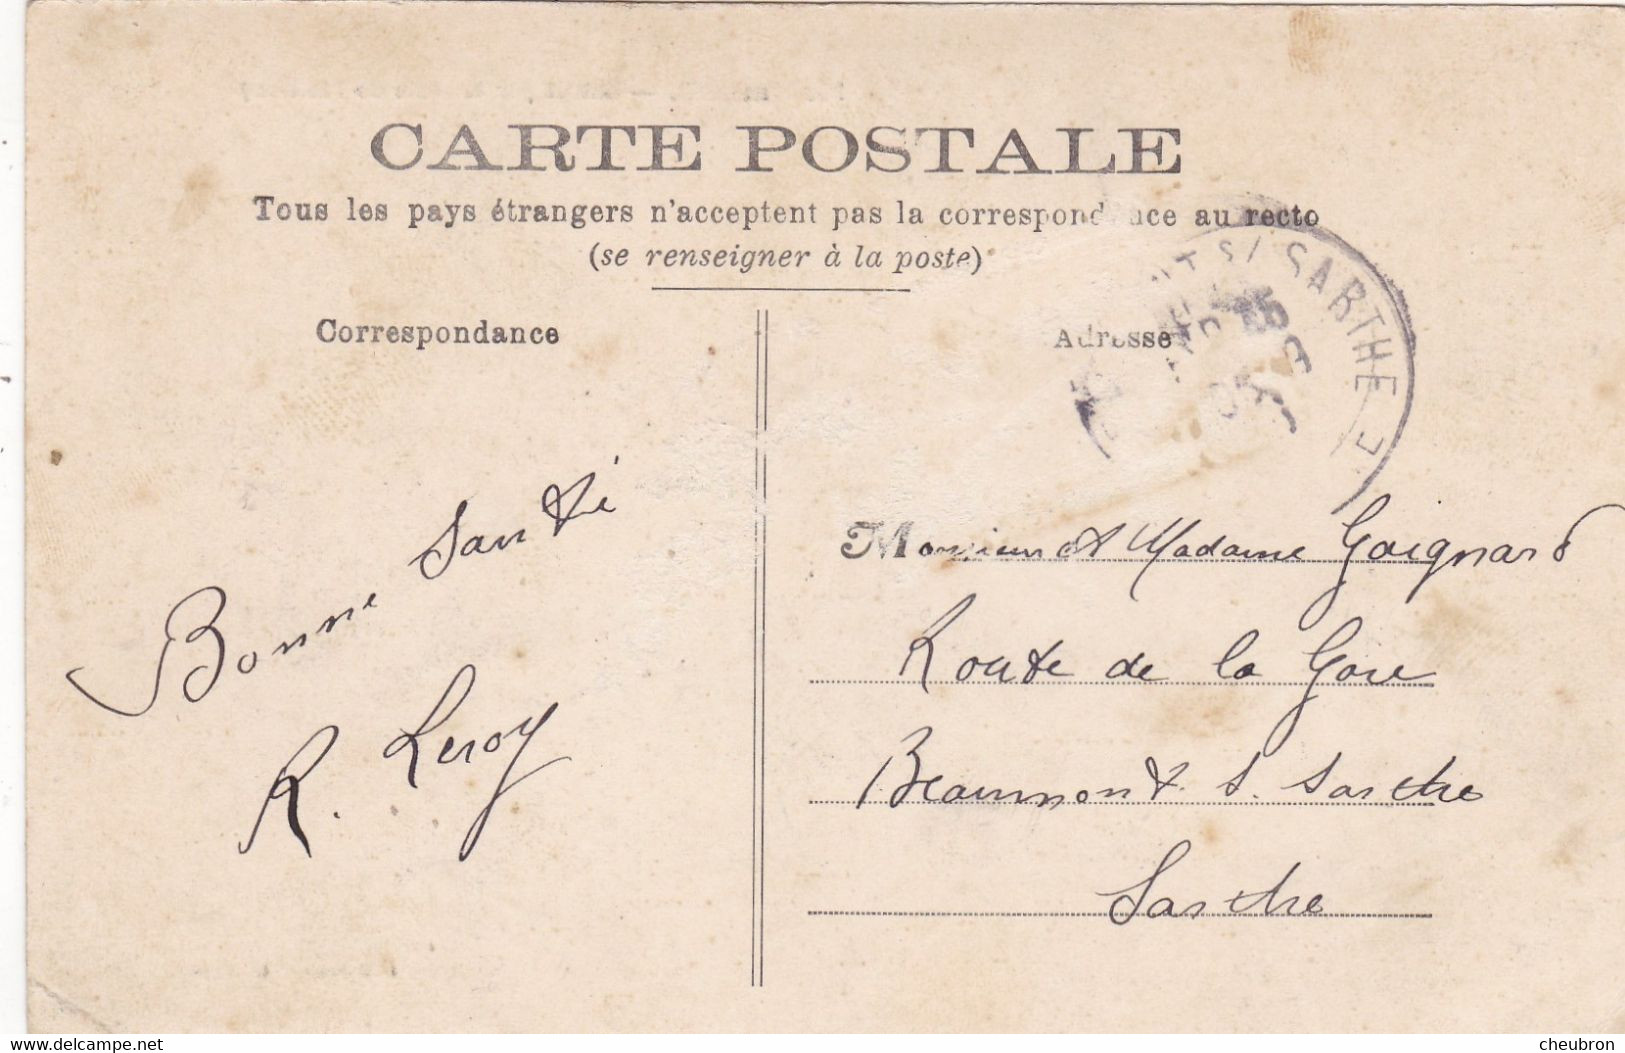 CARTE POSTALE
Tous les pays étrangers n'acceptent pas la correspondance au recto
(se renseigner à la poste)
Correspondance
Adresse
T S/ SARTHE
05
Bonne Santé
R. Leroy
Monsieur et Madame Gaignard
Route de la Gare
Beaumont. s. Sarthe
Sarthe
www.delcampe.net
cheubron